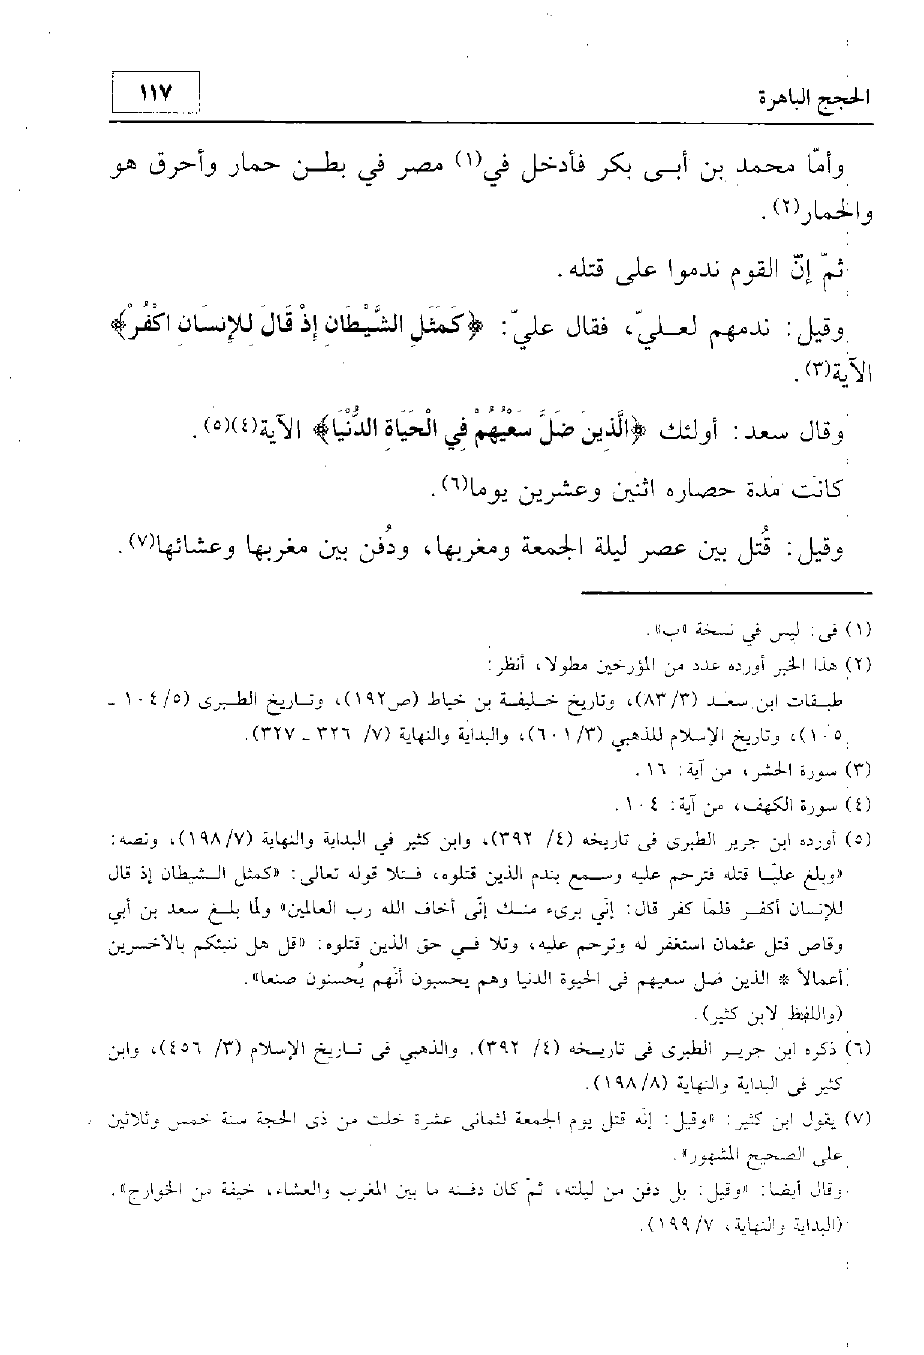 الحجج الباهرة
١١٧
وأمّا محمد بن أبى بكر فأدخل في(١) مصر في بطن حمار وأحرق هو
والحمار(٢).
ثمّ إنّ القوم ندموا على قتله.
وقيل: ندمهم لعليّ، فقال عليّ: ﴿كَمَثَلِ الشَّيْطَانِ إِذْ قَالَ لِلإِنسَانِ اكْفُرْ﴾
الآية(٣).
وقال سعد: أولئك ﴿الَّذِينَ ضَلَّ سَعْيُهُمْ فِي الْحَيَاةِ الدُّنْيَا﴾ الآية(٤)(٥).
كانت مدة حصاره اثنين وعشرين يوما(٦).
وقيل: قُتل بين عصر ليلة الجمعة ومغربها، ودُفن بين مغربها وعشائها(٧).
(١) فى: ليس في نسخة «ب».
(٢) هذا الخبر أورده عدد من المؤرخين مطولا، أنظر:
طبقات ابن سعد (٨٣/٣)، وتاريخ خليفة بن خياط (ص١٩٢)، وتاريخ الطبرى (١٠٤/٥ -
١٠٥)، وتاريخ الإسلام للذهبي (٦٠١/٣)، والبداية والنهاية (٧/ ٣٢٦ - ٣٢٧).
(٣) سورة الحشر، من آية: ١٦.
(٤) سورة الكهف، من آية: ١٠٤.
(٥) أورده ابن جرير الطبرى فى تاريخه (٤/ ٣٩٢)، وابن كثير في البداية والنهاية (١٩٨/٧)، ونصه:
«وبلغ عليّا قتله فترحم عليه وسمع بندم الذين قتلوه، فتلا قوله تعالى: «كمثل الشيطان إذ قال
للإنسان أكفر فلمّا كفر قال: إنّي برىء منك إنّى أخاف الله رب العالمين» ولما بلغ سعد بن أبي
وقاص قتل عثمان استغفر له وترحم عليه، وتلا في حق الذين قتلوه: «قل هل ننبئكم بالأخسرين
أعمالاً * الذين ضل سعيهم فى الحيوة الدنيا وهم يحسبون أنّهم يُحسنون صنعا».
(واللفظ لابن كثير).
(٦) ذكره ابن جرير الطبرى فى تاريخه (٤/ ٣٩٢). والذهبي فى تاريخ الإسلام (٣/ ٤٥٦)، وابن
كثير فى البداية والنهاية (١٩٨/٨).
(٧) يقول ابن كثير: «وقيل: إنّه قتل يوم الجمعة لثمانى عشرة خلت من ذى الحجة سنة خمس وثلاثين
على الصحيح المشهور».
وقال أيضا: «وقيل: بل دفن من ليلته، ثمّ كان دفنه ما بين المغرب والعشاء، خيفة من الخوارج».
(البداية والنهاية، ١٩٩/٧).